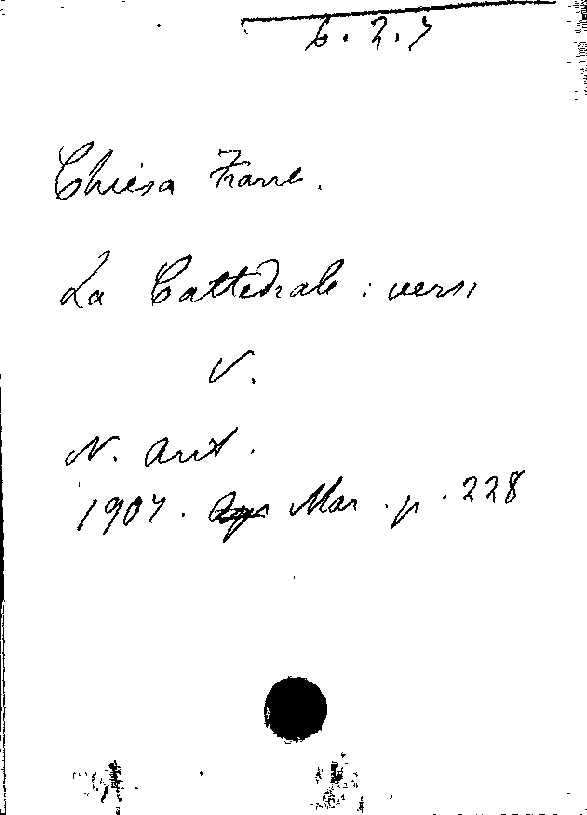 6.2.7
Chiesa Franc.
La Cattedrale : versi
V.
N. Ant.
1907. Mar. p. 228